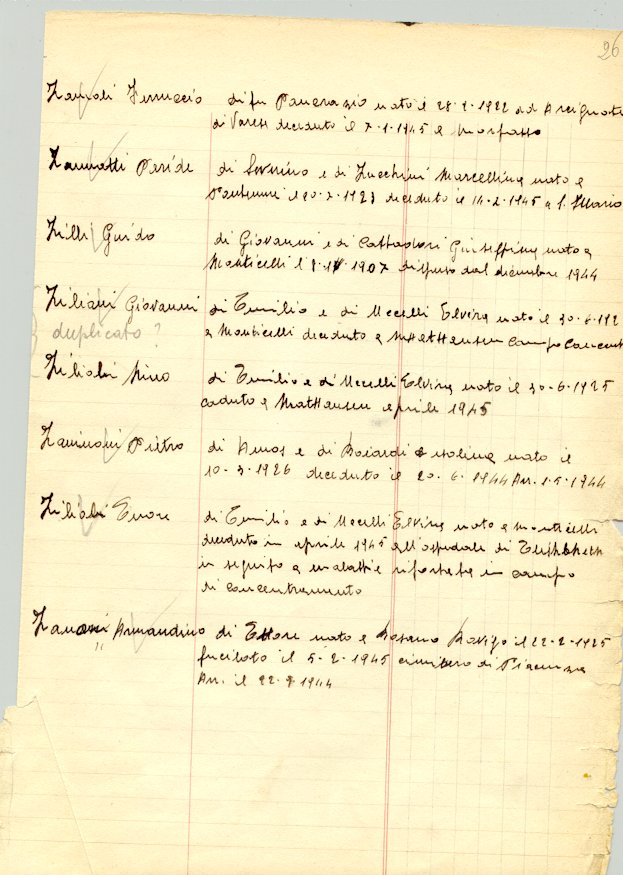 26
Zanoli Ferruccio di fu Pancrazio nato il 28-2-1922 ad
di Varese deceduto il 7-1-1945 a Morfasso
Zannotti Peride di Severino e di Zucchini Marcellina nato a
il 20-7-1923 deceduto il 14-2-1945 a S. Ilario
Zilli Guido di Giovanni e di Cattadori Giuseppina nato a
Monticelli l' 1907 disperso dal dicembre 1944
Ziliani Giovanni di Emilio e di Uccelli Elvira nato il 30-6-192
duplicato ? a Monticelli deceduto a Mathausen campo concent
Ziliani Nino di Emilio e di Uccelli Elvira nato il 30-6-1925
caduto a Mathausen aprile 1945
Zaninoni Pietro di Amos e di Boiardi nato il
10-3-1926 deceduto il 20-6-1944 Arr. 1-5-1944
Ziliani Ettore di Emilio e di Uccelli Elvira nato a Monticelli
deceduto in aprile 1945 all'ospedale di
in seguito a malattie riportate in campo
di concentramento
Zanoni Armandino di Ettore nato a Rovigo il 22-2-1925
fucilato il 5-2-1945 cimitero di Piacenza
Arr. il 1944